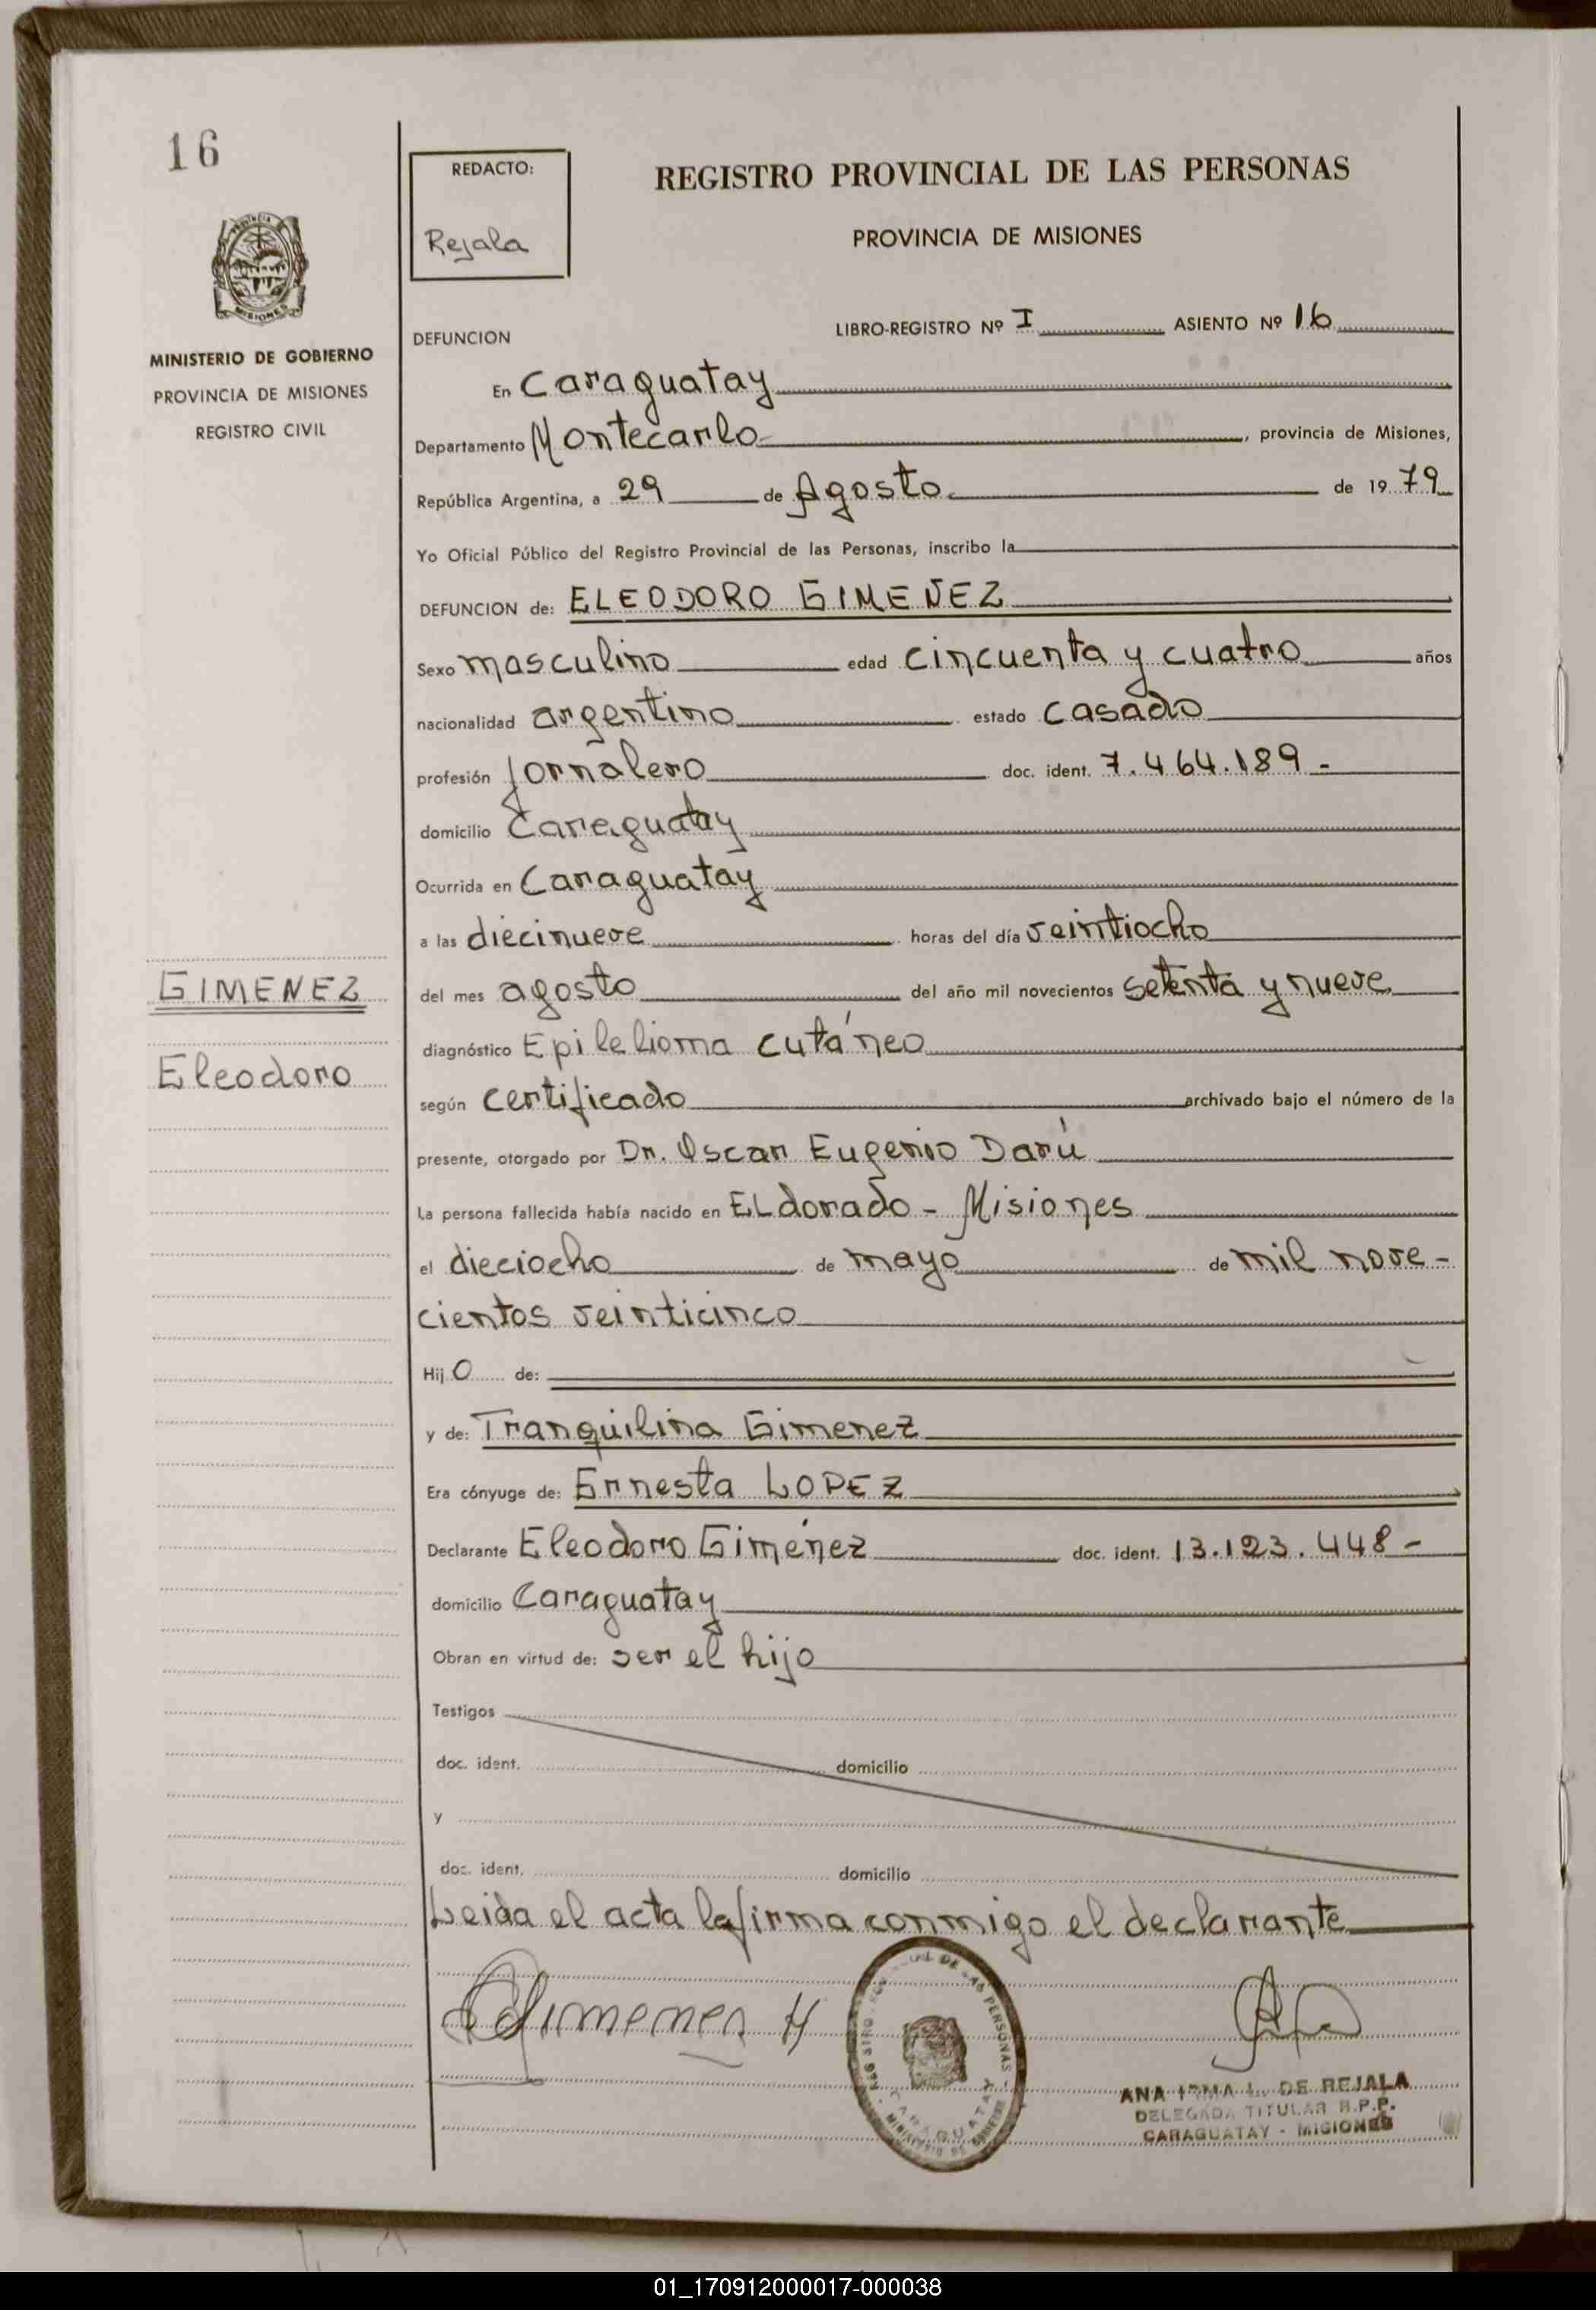 16
PROVINCIA
MISIONES
MINISTERIO DE GOBIERNO
PROVINCIA DE MISIONES
REGISTRO CIVIL
REDACTO:
Rejala
REGISTRO PROVINCIAL DE LAS PERSONAS
PROVINCIA DE MISIONES
DEFUNCION LIBRO-REGISTRO Nº I ASIENTO Nº 16
En Caraguatay
Departamento Montecarlo, provincia de Misiones,
República Argentina, a 29 de Agosto de 1979
Yo Oficial Público del Registro Provincial de las Personas, inscribo la
DEFUNCION de: ELEODORO GIMENEZ
Sexo masculino edad cincuenta y cuatro años
nacionalidad argentino estado casado
profesión jornalero doc. ident. 7.464.189 -
domicilio Caraguatay
Ocurrida en Caraguatay
a las diecinueve horas del día veintiocho
del mes agosto del año mil novecientos setenta y nueve
diagnóstico Epilelioma cutáneo
según certificado archivado bajo el número de la
presente, otorgado por Dr. Oscar Eugenio Darú
La persona fallecida había nacido en ELdorado - Misiones
el dieciocho de mayo de mil nove-
cientos veinticinco
Hijo de:
y de: Tranquilina Gimenez
Era cónyuge de: Ernesta LOPEZ
Declarante Eleodoro Giménez doc. ident. 13.123.448 -
domicilio Caraguatay
Obran en virtud de: ser el hijo
Testigos
doc. ident. domicilio
y
doc. ident. domicilio
Leida el acta la firma conmigo el declarante
GIMENEZ
Eleodoro
Gimenez H
DE LAS PERSONAS
CARAGUATAY
ANA IRMA L. DE REJALA
DELEGADA TITULAR R.P.P.
CARAGUATAY - MISIONES
01_170912000017-000038